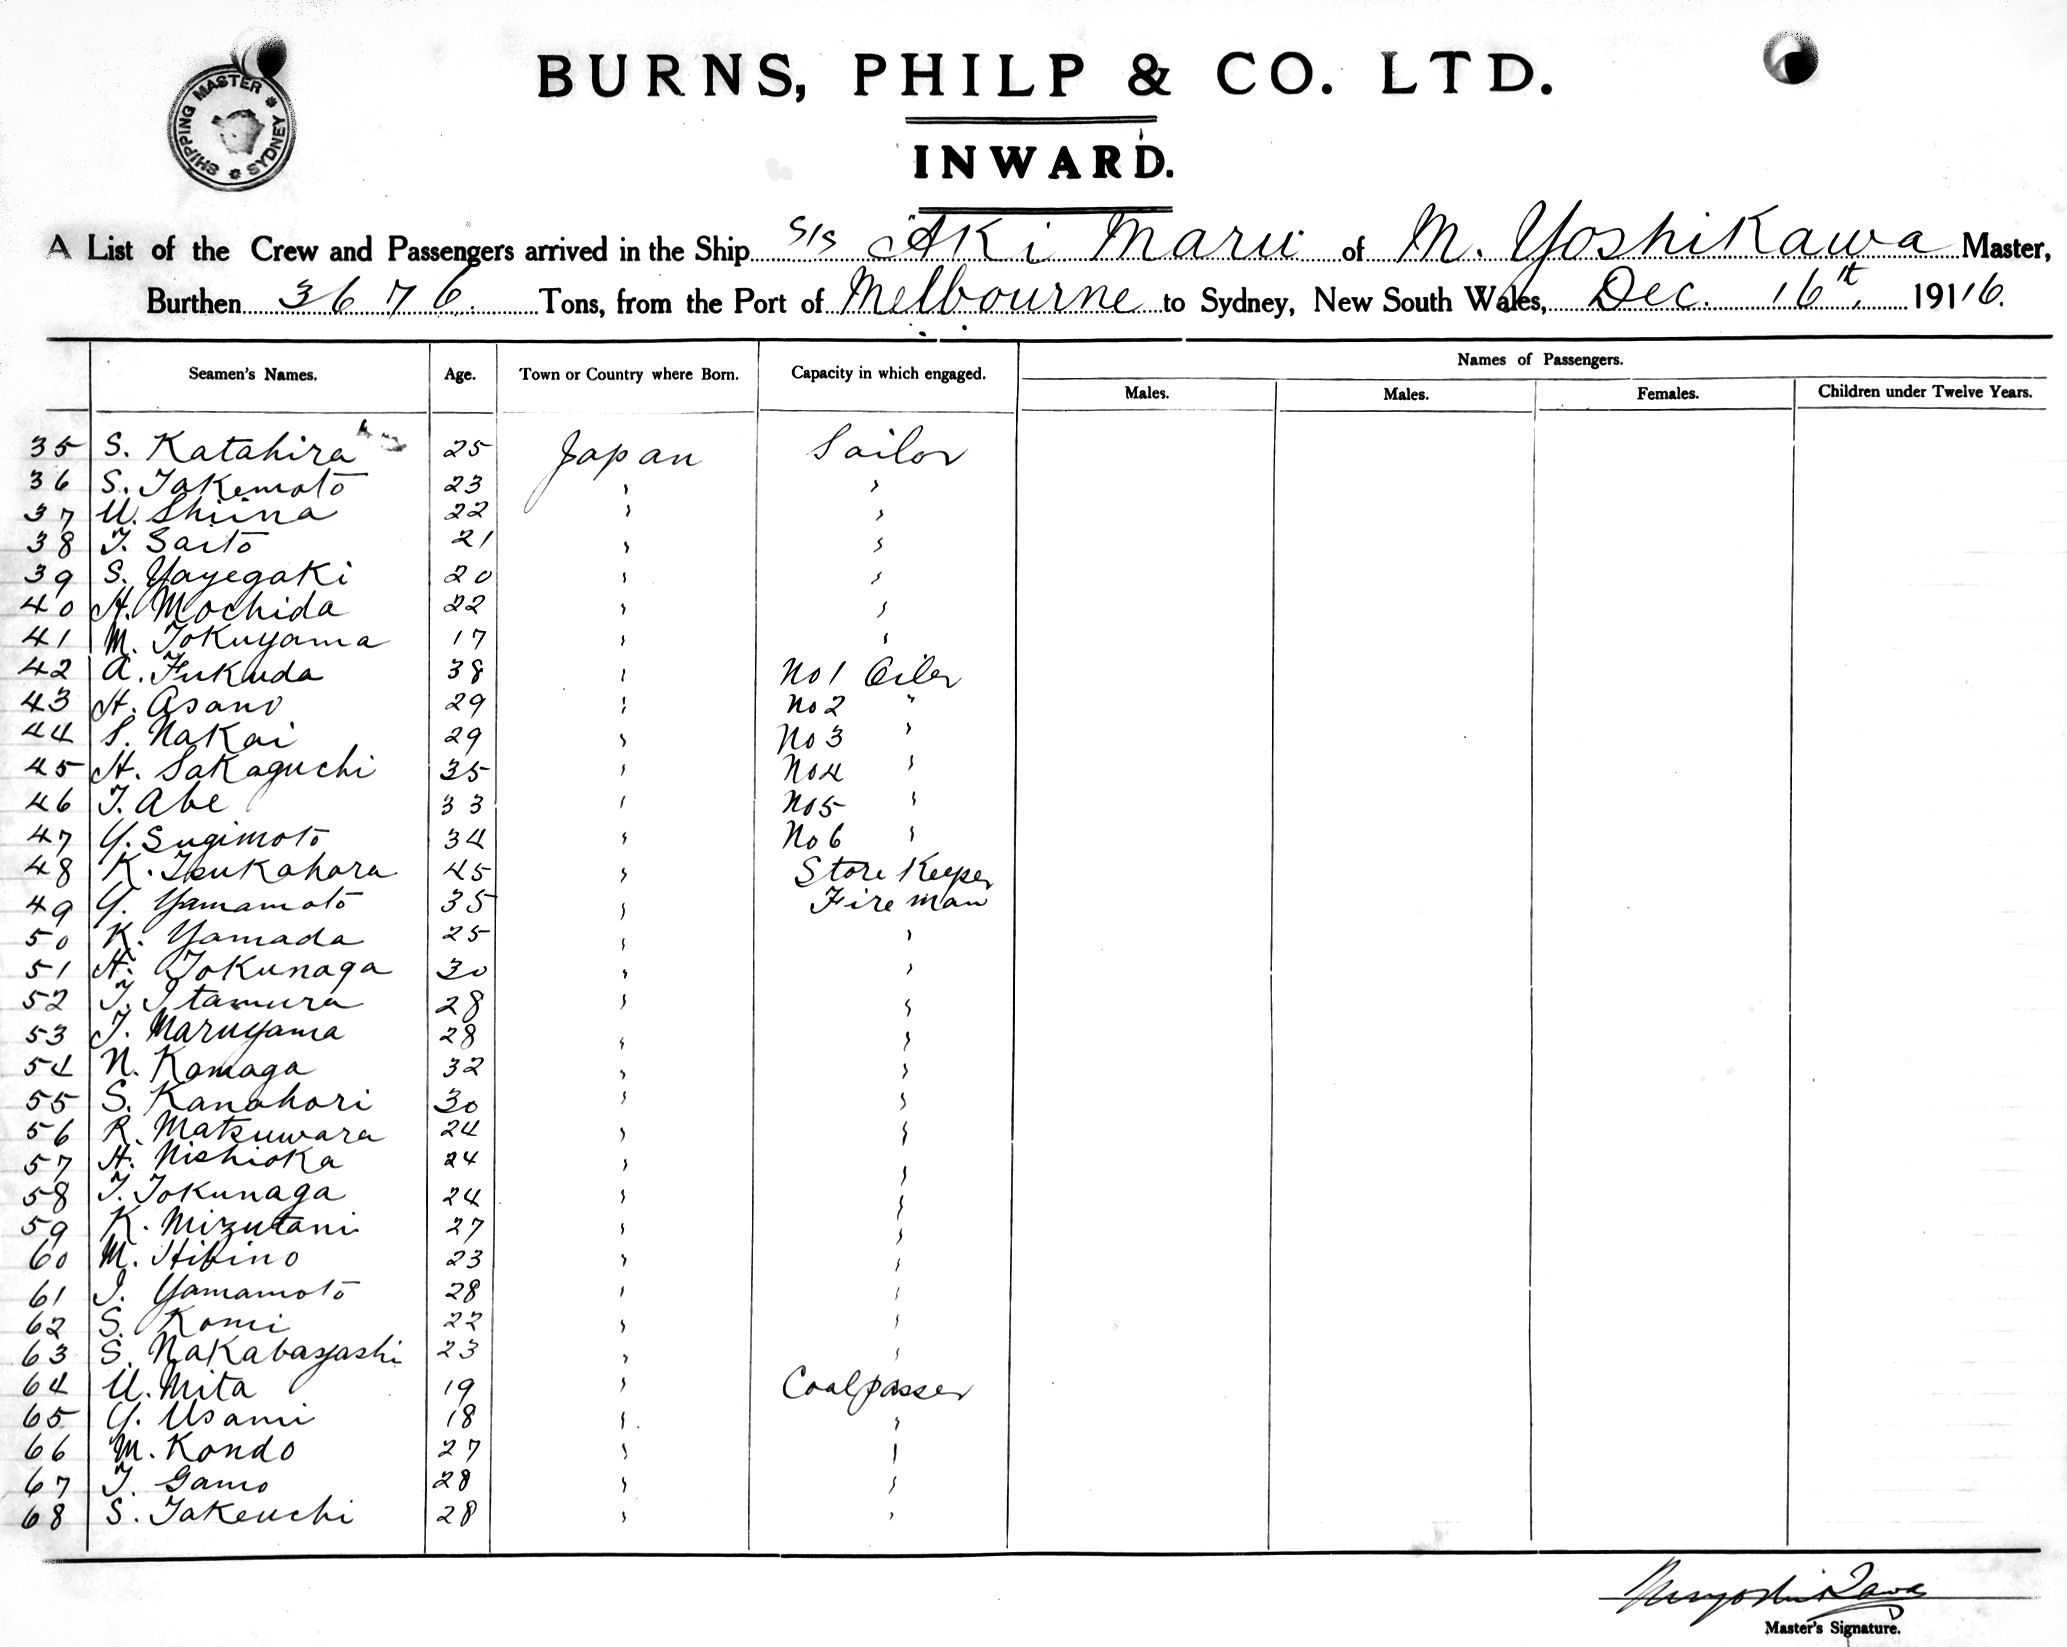 SHIPPING MASTER * SYDNEY *
BURNS, PHILP & CO. LTD.
INWARD.
A List of the Crew and Passengers arrived in the Ship S/S "Aki Maru" of M. Yoshikawa Master,
Burthen 3676 Tons, from the Port of Melbourne to Sydney, New South Wales, Dec. 16th 1916.
Names of Passengers.
Seamen's Names. Age. Town or Country where Born. Capacity in which engaged. Males. Males. Females. Children under Twelve Years.
35 S. Katahira 25 Japan Sailor
36 S. Takemoto 23 " "
37 U. Shiina 22 " "
38 T. Saito 21 " "
39 S. Yayegaki 20 " "
40 H. Mochida 22 " "
41 M. Tokuyama 17 " "
42 A. Fukuda 38 " No 1 Oiler
43 H. Asano 29 " No 2 "
44 S. Nakai 29 " No 3 "
45 H. Sakaguchi 35 " No 4 "
46 T. Abe 33 " No 5 "
47 Y. Sugimoto 34 " No 6 "
48 K. Tsukahara 45 " Store Keeper
49 Y. Yamamoto 35 " Fireman
50 K. Yamada 25 " "
51 H. Tokunaga 30 " "
52 T. Itamura 28 " "
53 T. Maruyama 28 " "
54 N. Komaga 32 " "
55 S. Kanahori 30 " "
56 R. Matsuwara 24 " "
57 H. Nishioka 24 " "
58 T. Tokunaga 24 " "
59 K. Mizutani 27 " "
60 M. Hibino 23 " "
61 I. Yamamoto 28 " "
62 S. Komi 22 " "
63 S. Nakabayashi 23 " "
64 U. Mita 19 " Coalpasser
65 Y. Usami 18 " "
66 M. Kondo 27 " "
67 T. Gamo 28 " "
68 S. Takeuchi 28 " "
Master's Signature.